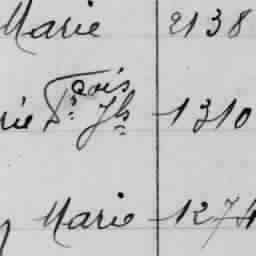 Marie 2138
rie Fçois Jh 1310
Marie 1274